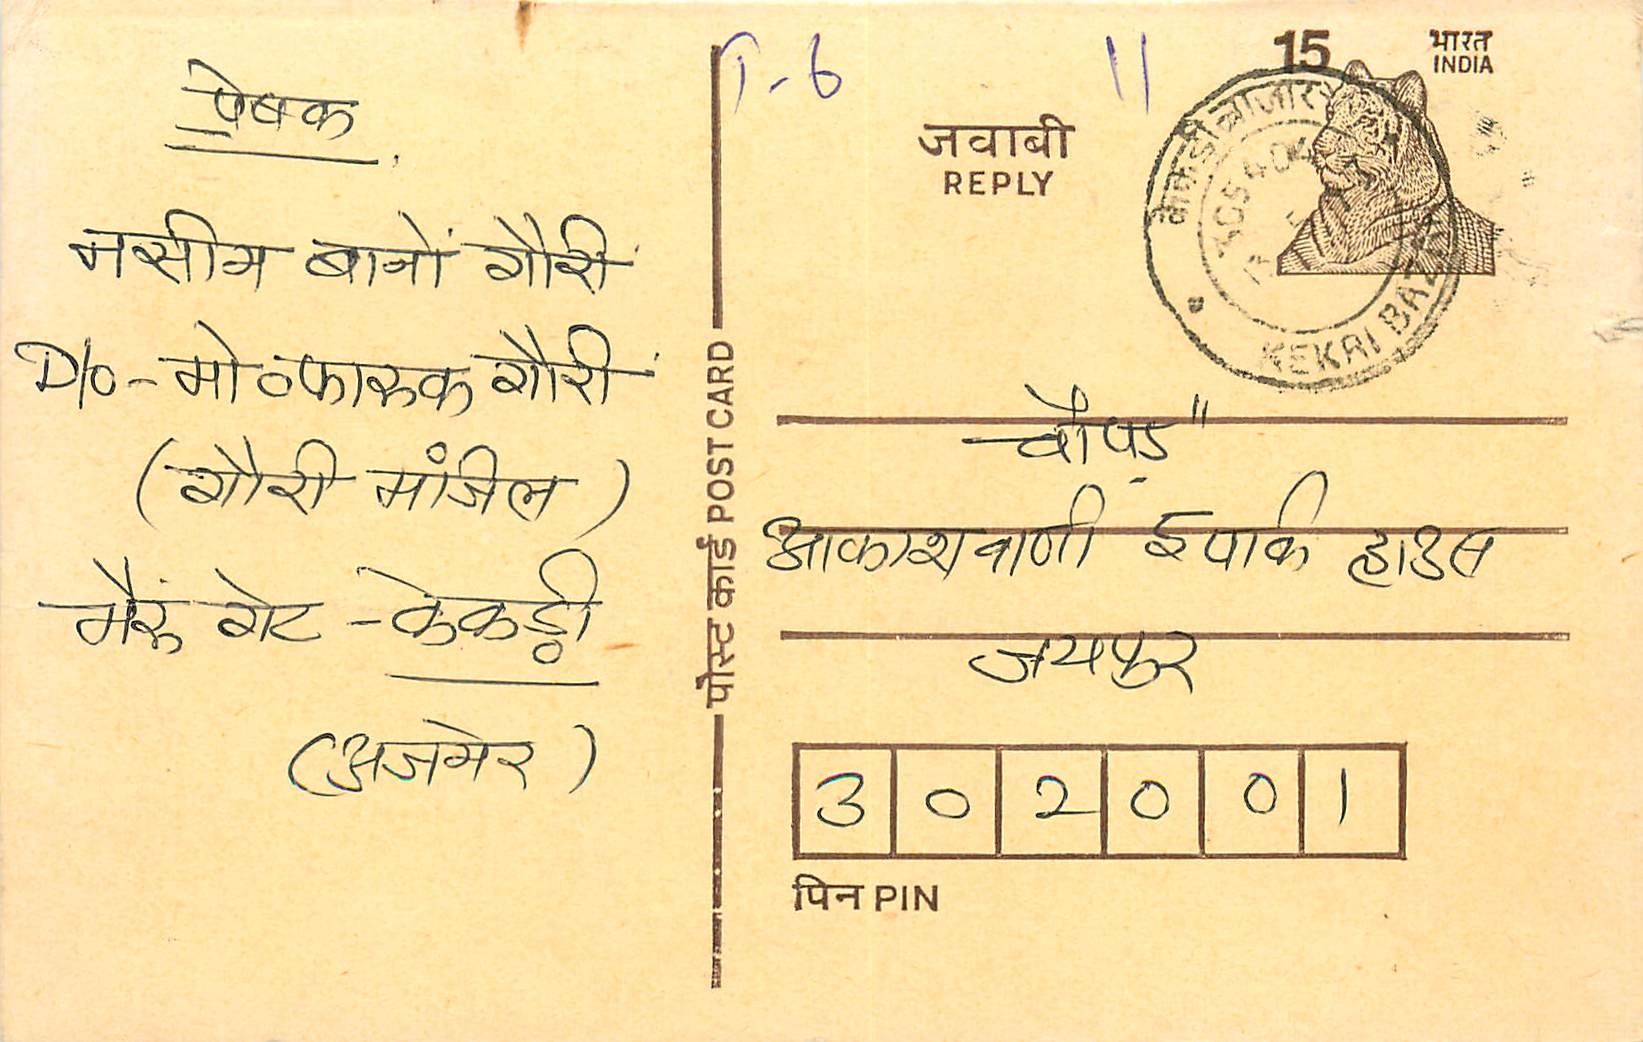 प्रेषक
नसीम बानों गौरी
D/o - मो० फारूक गौरी
(गौरी मंजिल)
भैरूं गेट - केकड़ी
(अजमेर)
पोस्ट कार्ड POST CARD
T-6 11
15 भारत
INDIA
जवाबी
REPLY
केकड़ी बाजार
KEKRI BAZAR
चौपड़"
आकाशवाणी ईपार्क हाउस
जयपुर
3 0 2 0 0 1
पिन PIN